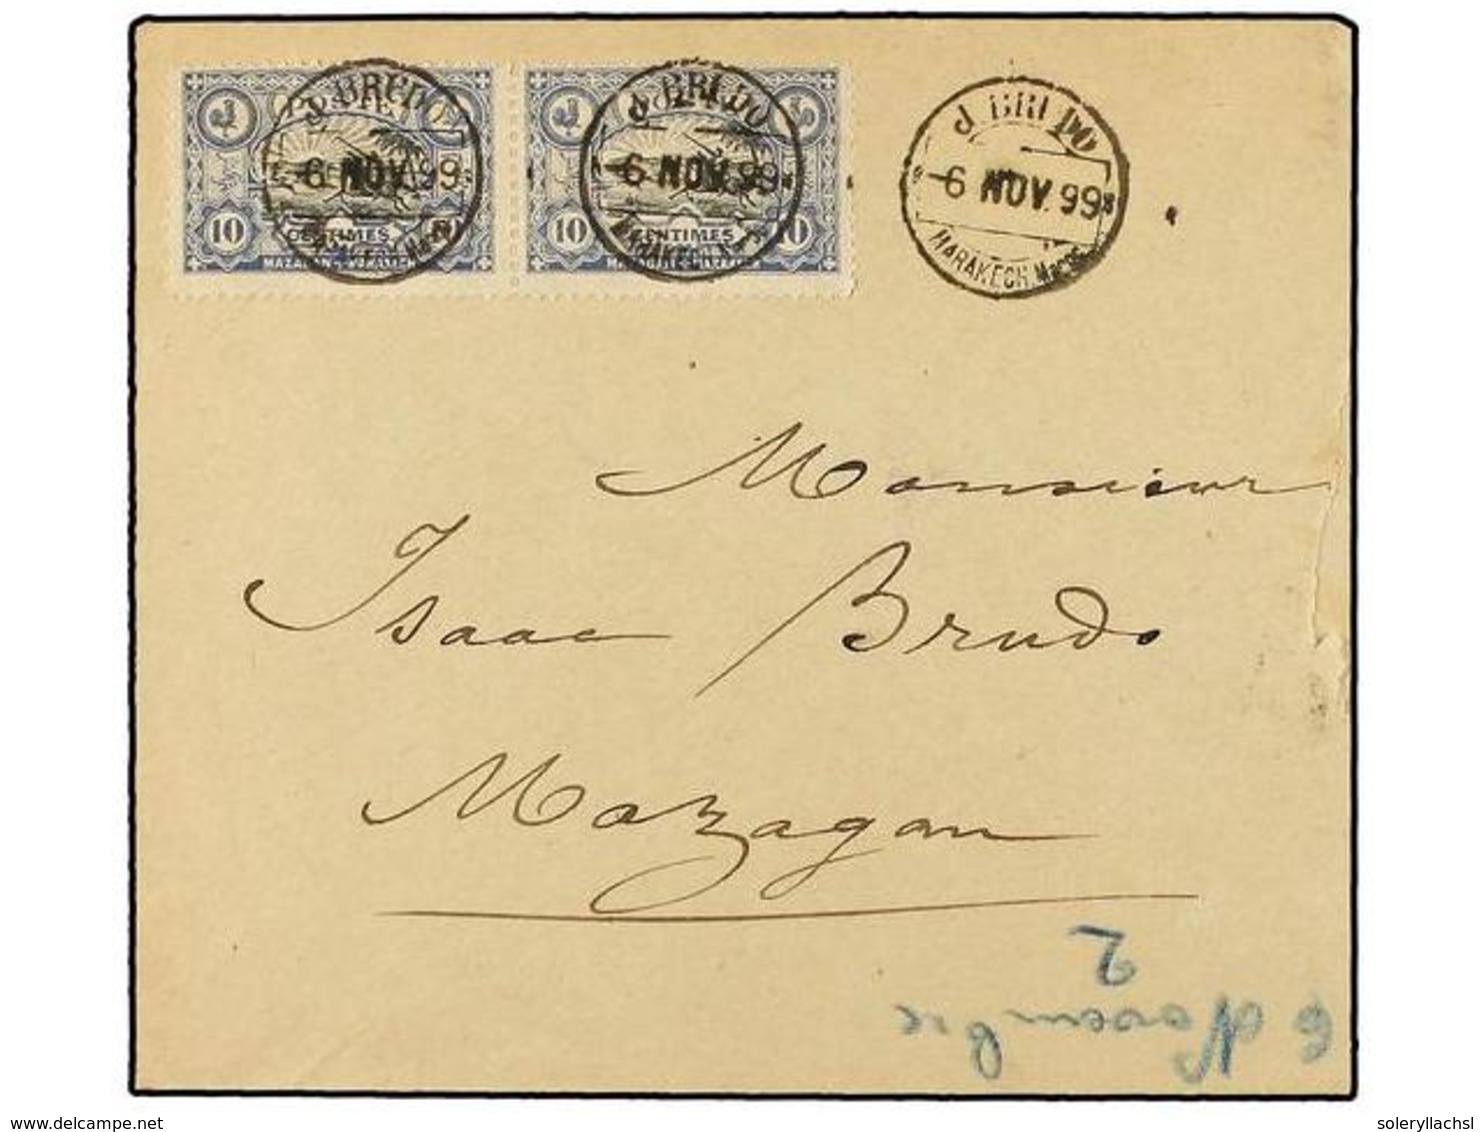 J. BRUDO
6 NOV. 99
MARAKECH Maroc
J. BRUDO
6 NOV. 99
MARAKECH
J. BRUDO
6 NOV. 99
MARAKECH. Maroc
10 CENTIMES 10
MAZAGAN - MARAKECH
10 CENTIMES 10
MAZAGAN - MARAKECH
Monsieur
Isaac Brudo
Mazagan
2
6 Novembre
delcampe.net
soleryllachsl